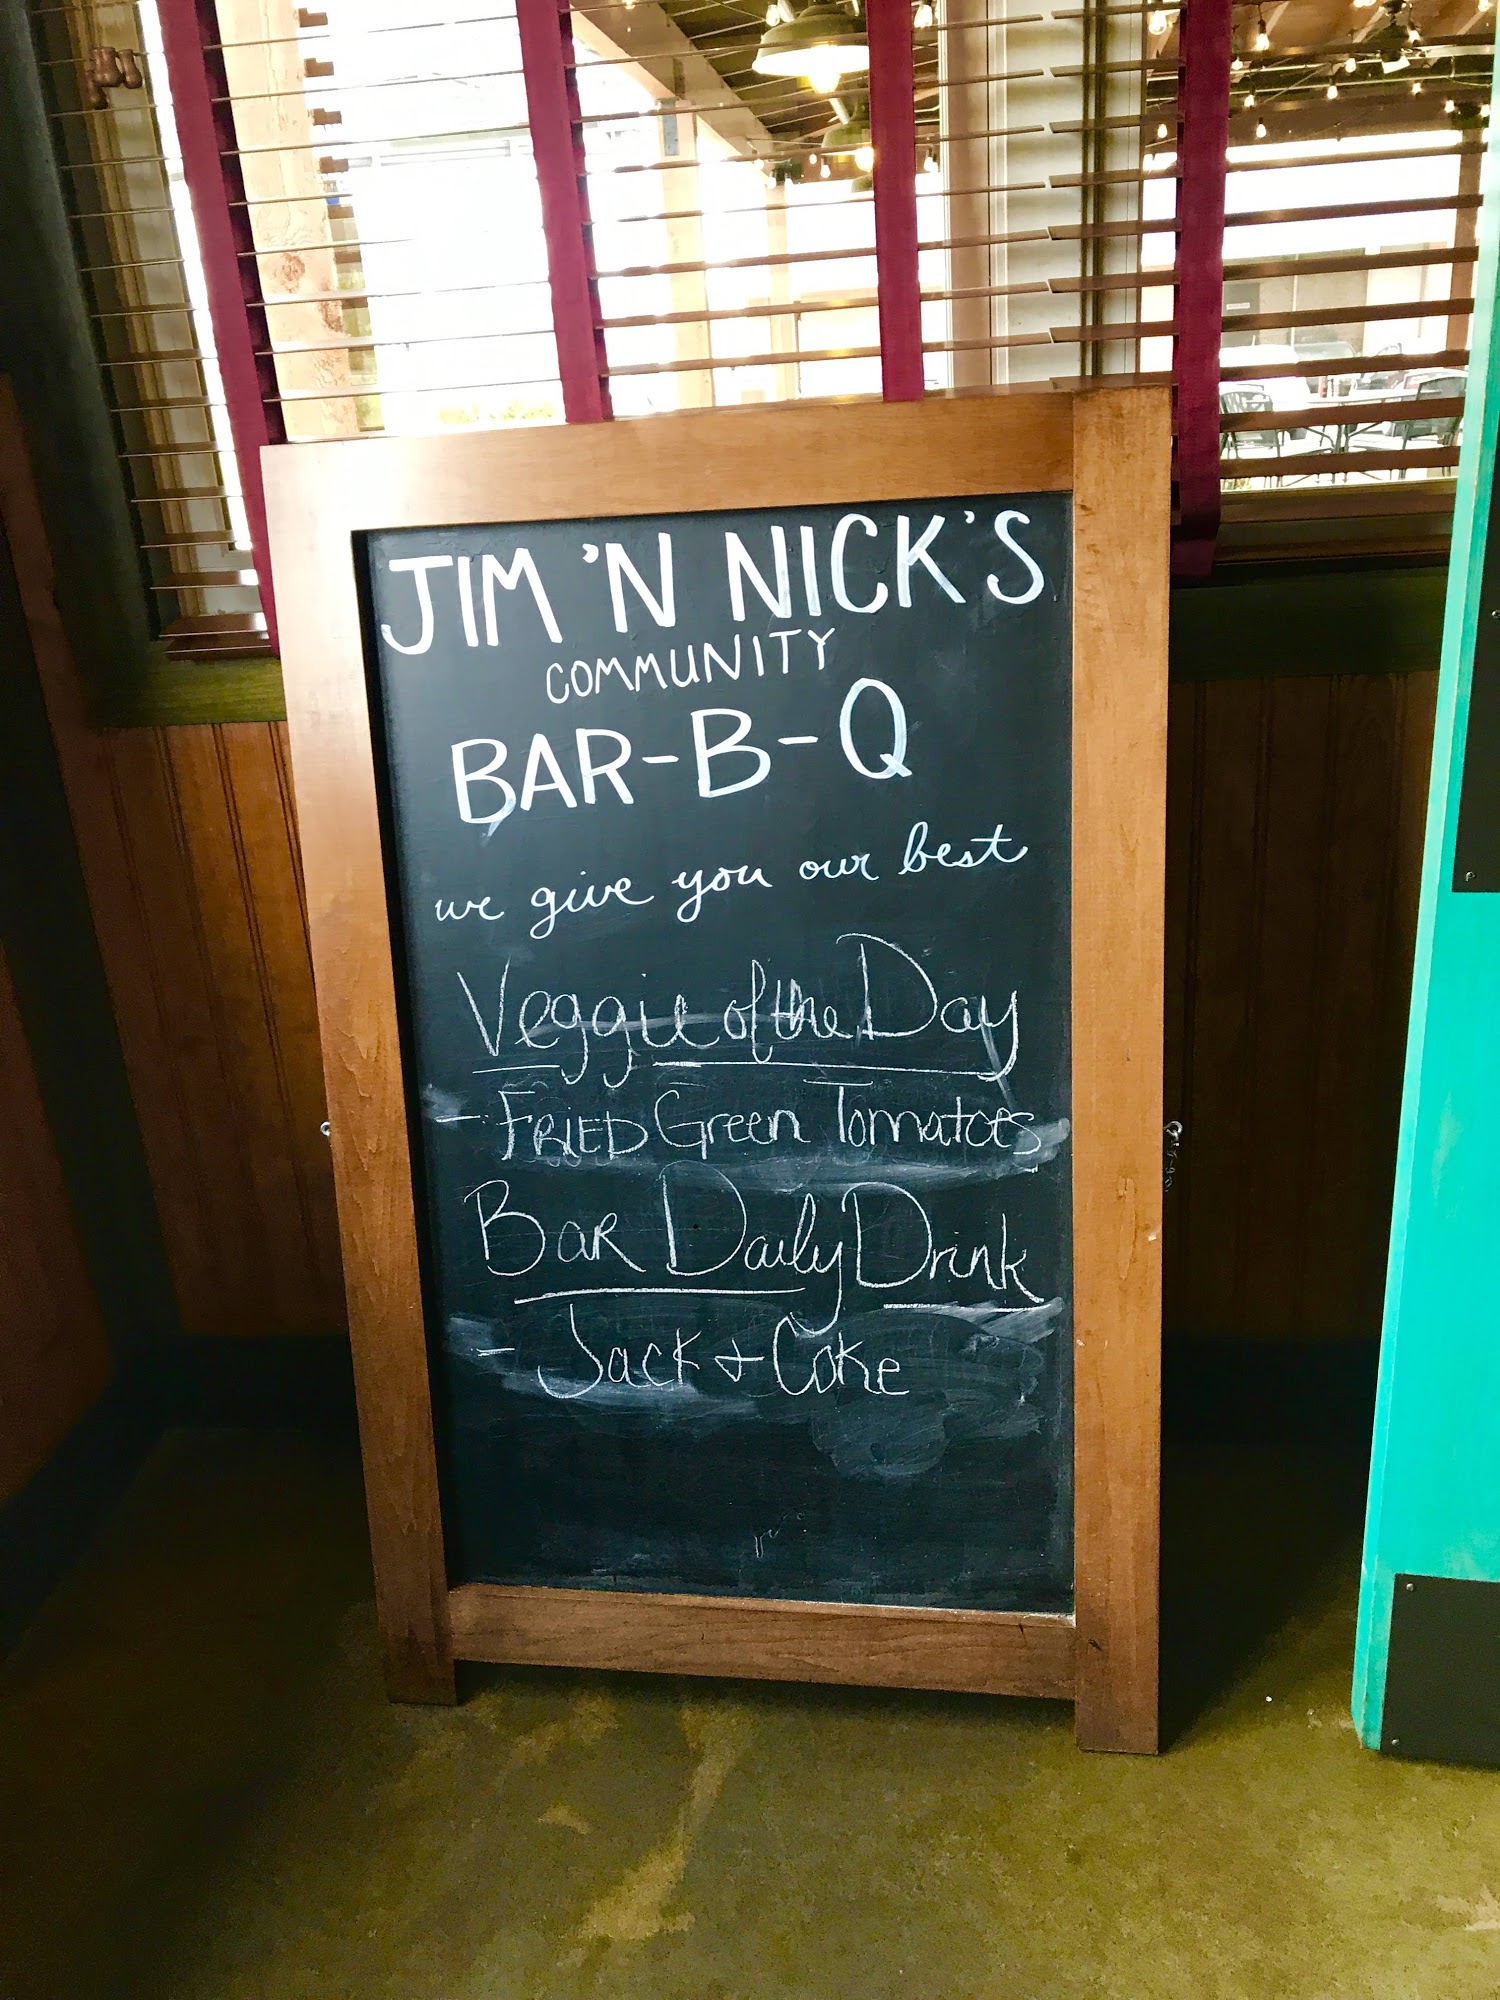 JIM 'N NICK'S
COMMUNITY
BAR-B-Q
we give you our best
Veggie of the Day
- FRIED Green Tomatoes
BAR Daily Drink
- Jack & Coke